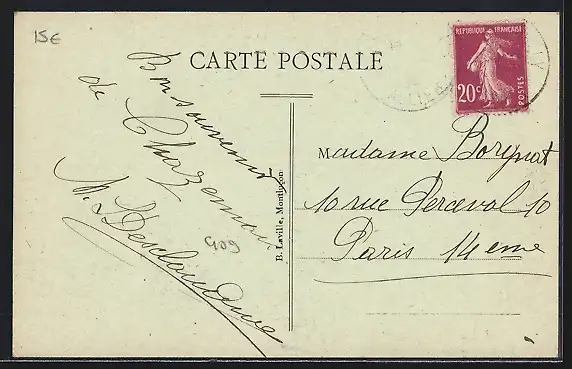 15€
CARTE POSTALE
RÉPUBLIQUE FRANÇAISE
20c
POSTES
Bon souvenir
de Chazemais
M. Desclaudure
909
B. Laville, Montluçon
Madame Borgnat
10 rue Perceval 10
Paris 14eme